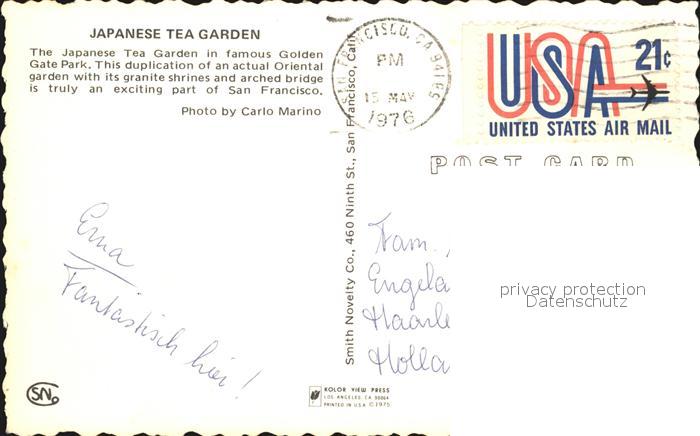 JAPANESE TEA GARDEN
The Japanese Tea Garden in famous Golden
Gate Park. This duplication of an actual Oriental
garden with its granite shrines and arched bridge
is truly an exciting part of San Francisco.
Photo by Carlo Marino
SAN FRANCISCO, CA 94189
PM
15 MAY
1976
USA 21c
UNITED STATES AIR MAIL
POST CARD
Smith Novelty Co., 460 Ninth St., San Francisco, Calif.
Erna
Fantastisch hier!
Fam.,
Engela
Haarle
Holla
privacy protection
Datenschutz
SN
KOLOR VIEW PRESS
LOS ANGELES, CA 90064
PRINTED IN U.S.A. ©1975